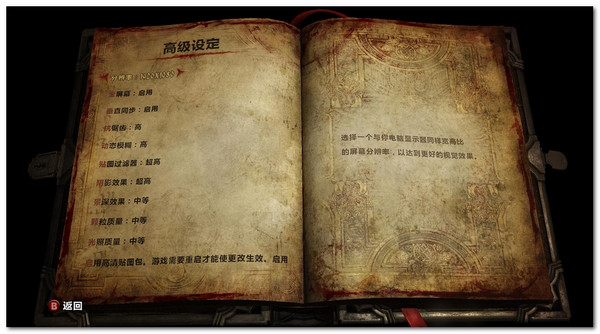 高级设定
分辨率：
全屏幕：启用
垂直同步：启用
抗锯齿：高
动态模糊：高
贴图过滤器：超高
阴影效果：超高
景深效果：中等
颗粒质量：中等
光照质量：中等
启用高清贴图包。游戏需要重启才能使更改生效。启用
选择一个与你电脑显示器同样宽高比
的屏幕分辨率，以达到更好的视觉效果。
B 返回